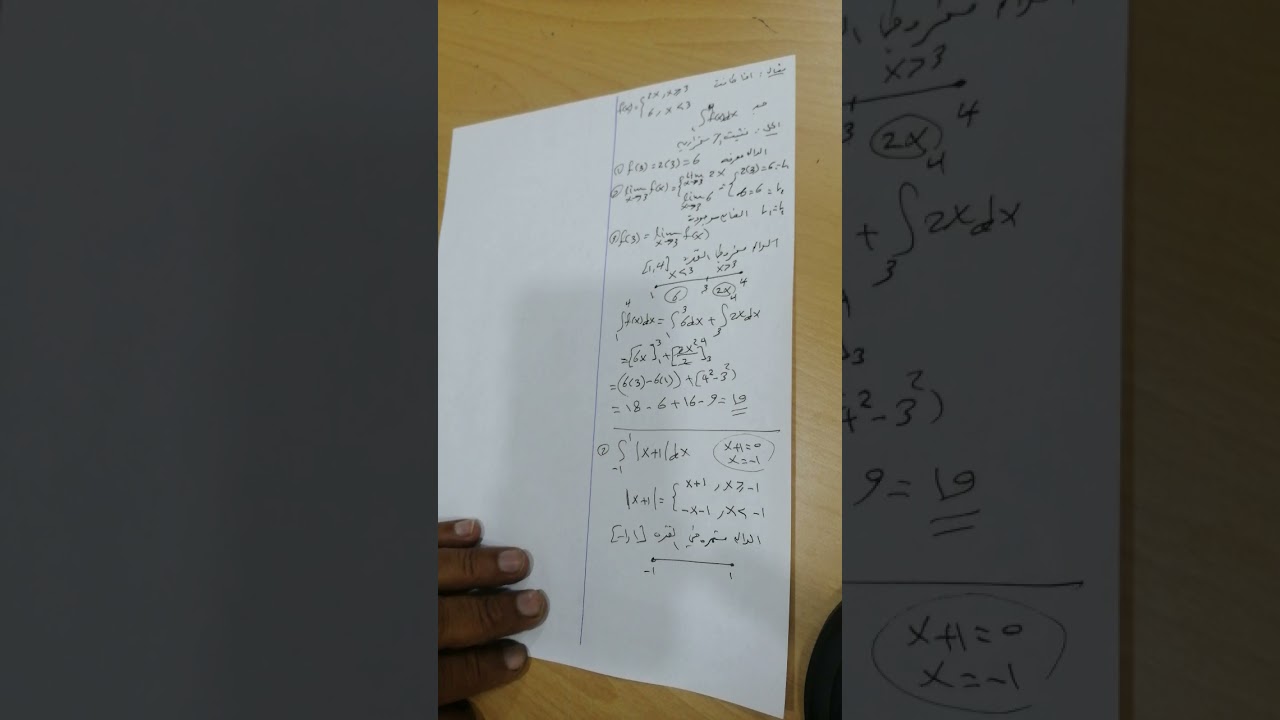 مثال : اذا كانت
f(x)={2x, x≥3
6, x<3
جد ∫₁⁴ f(x)dx
الحل : نثبت الاستمرارية
① f(3)=2(3)=6 الدالة معرفة
② lim x→3 f(x)={lim x→3 2x ={2(3)=6=L₁
lim x→3 6 6=6=L₂
L₁=L₂ الغاية موجودة
③ f(3)=lim x→3 f(x)
الدالة مستمرة على الفترة [1,4]
x<3 x≥3
1 6 3 2x 4
∫₁⁴ f(x)dx=∫₁³ 6dx+∫₃⁴ 2xdx
=[6x]₁³+[2x²/2]₃⁴
=(6(3)-6(1))+(4²-3²)
=18-6+16-9=19
② ∫₋₁¹ |x+1|dx x+1=0
x=-1
|x+1|={x+1, x≥-1
-x-1, x<-1
الدالة مستمرة على الفترة [-1,1]
-1 1
x≥3
3 2x 4
+∫₃⁴ 2xdx
4²-3²)
9=19
x+1=0
x=-1